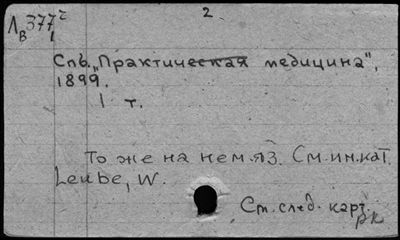 2
Л 377/2
В 1
Спб. „Практическая медицина",
1899.
1 т.
То же на нем.яз. См.ин.кат.
Leube, W.
См.след. карт.